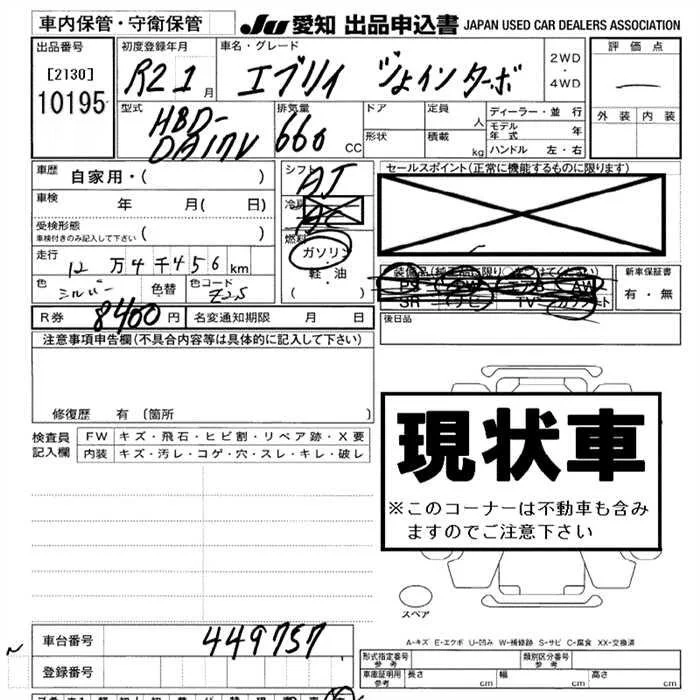 車内保管・守衛保管 JU 愛知 出品申込書 JAPAN USED CAR DEALERS ASSOCIATION
出品番号 初度登録年月 車名・グレード 2WD・4WD 評価点
[2130] R2 1月 エブリイ ジョインターボ
10195
型式 排気量 ドア 定員 人 ディーラー・並行 外装 内装
HBD-DA17V 660 CC 形状 積載 kg モデル年式 年
ハンドル 左・右
車歴 自家用・( ) シフト AT セールスポイント(正常に機能するものに限ります)
車検 年 月( 日) 冷房 AC
受検形態 ( )
車検付きのみ記入して下さい
燃料 ガソリン
走行 12万4千456km 軽・油 装備品(純正品に限り つけて下さい) 新車保証書
色 シルバー 色替 色コード Z2S ( ) PS PW エアB AW 有・無
SR ナビ TV
R券 8400円 名変通知期限 月 日 後日品
注意事項申告欄(不具合内容等は具体的に記入して下さい)
修復歴 有 〔箇所 〕
現状車
※このコーナーは不動車も含み
ますのでご注意下さい
検査員 FW キズ・飛石・ヒビ割・リペア跡・X要
記入欄 内装 キズ・汚レ・コゲ・穴・スレ・キレ・破レ
スペア
A-キズ E-エクボ U-凹み W-補修跡 S-サビ C-腐食 XX-交換済
車台番号 449757 形式指定番号 参考 類別区分番号 参考
登録番号 車庫証明用 参考 長さ cm 幅 cm 高さ cm